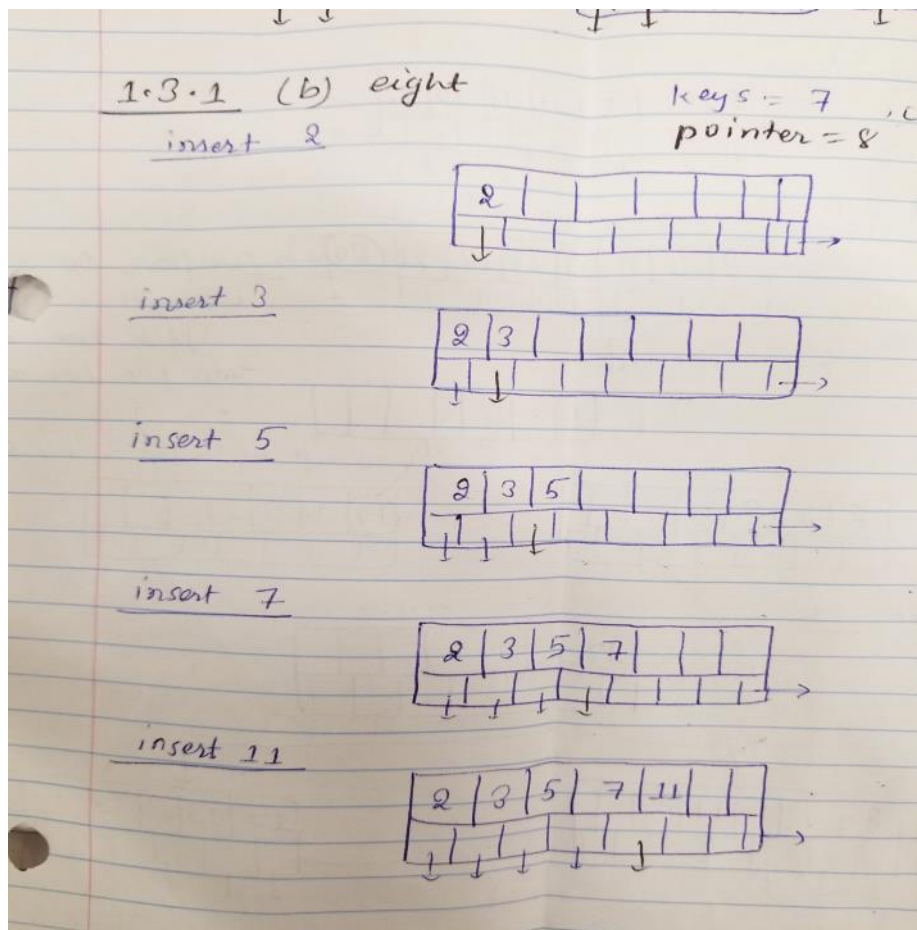 1.3.1 (b) eight
keys = 7
pointer = 8
insert 2
2
insert 3
2 3
insert 5
2 3 5
insert 7
2 3 5 7
insert 11
2 3 5 7 11